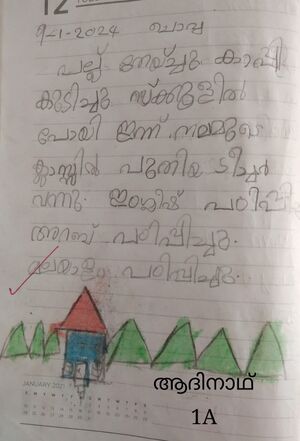 9-1-2024 ചൊവ്വ
പല്ല് തേയ്ച്ചു കാപ്പി
കുടിച്ചു സ്ക്കൂളിൽ
പോയി ഇന്ന് നമ്മുടെ
ക്ലാസ്സിൽ പുതിയ ടീച്ചർ
വന്നു. ഇംഗ്ലീഷ് പഠിപ്പി
അറബ് പഠിപ്പിച്ചു.
മലയാളം പഠിപ്പിച്ചു.
JANUARY 2021
ആദിനാഥ്
1A